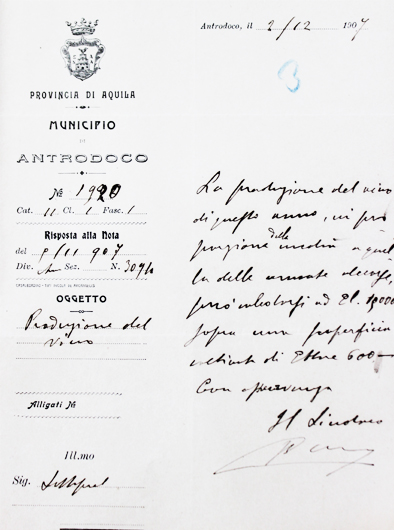 PROVINCIA DI AQUILA
MUNICIPIO
DI
ANTRODOCO
№ 1920
Cat. 11 Cl. 1 Fasc. 1
Risposta alla Nota
del 8/11 907
Div. Sez. N.
OGGETTO
Produzione del
vino
Alligati №
Ill.mo
Sig.
Antrodoco, il 2/12 1907
3
La produzione del vino
di questo anno, in pro
porzione della media a quel
la delle annate decorse,
può calcolarsi ad El.
sopra una superficie
coltivata di Ettare 600
Con osservanza
Il Sindaco